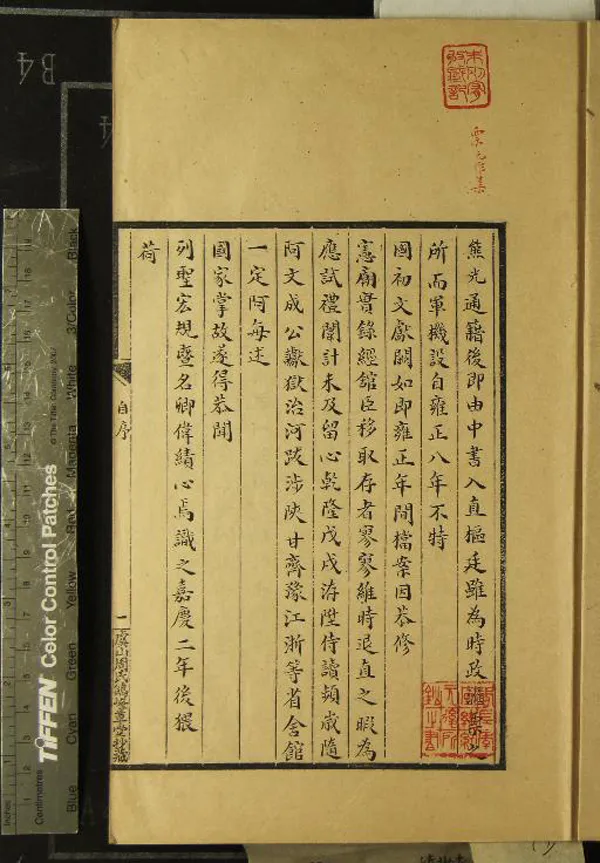 朱別宥收藏記
熊光通籍後即由中書入直樞廷雖為時政
所而軍機設自雍正八年不特
國初文獻闕如即雍正年間檔案因恭修
憲廟實錄經館臣移取存者寥寥維時退直之暇為
應試禮闈計未及留心乾隆戊戌洊陞侍讀頻歲隨
阿文成公讞獄治河跋涉陝甘齊豫江浙等省舍館
一定阿每述
國家掌故遂得恭聞
列聖宏規暨名卿偉績心焉識之嘉慶二年後猥
荷
自序
一
虞山周氏鴿峰草堂抄藏
B4
TIFFEN Color Control Patches
Blue Cyan Green Yellow Red Magenta White 3/Color Black
Inches
Centimetres